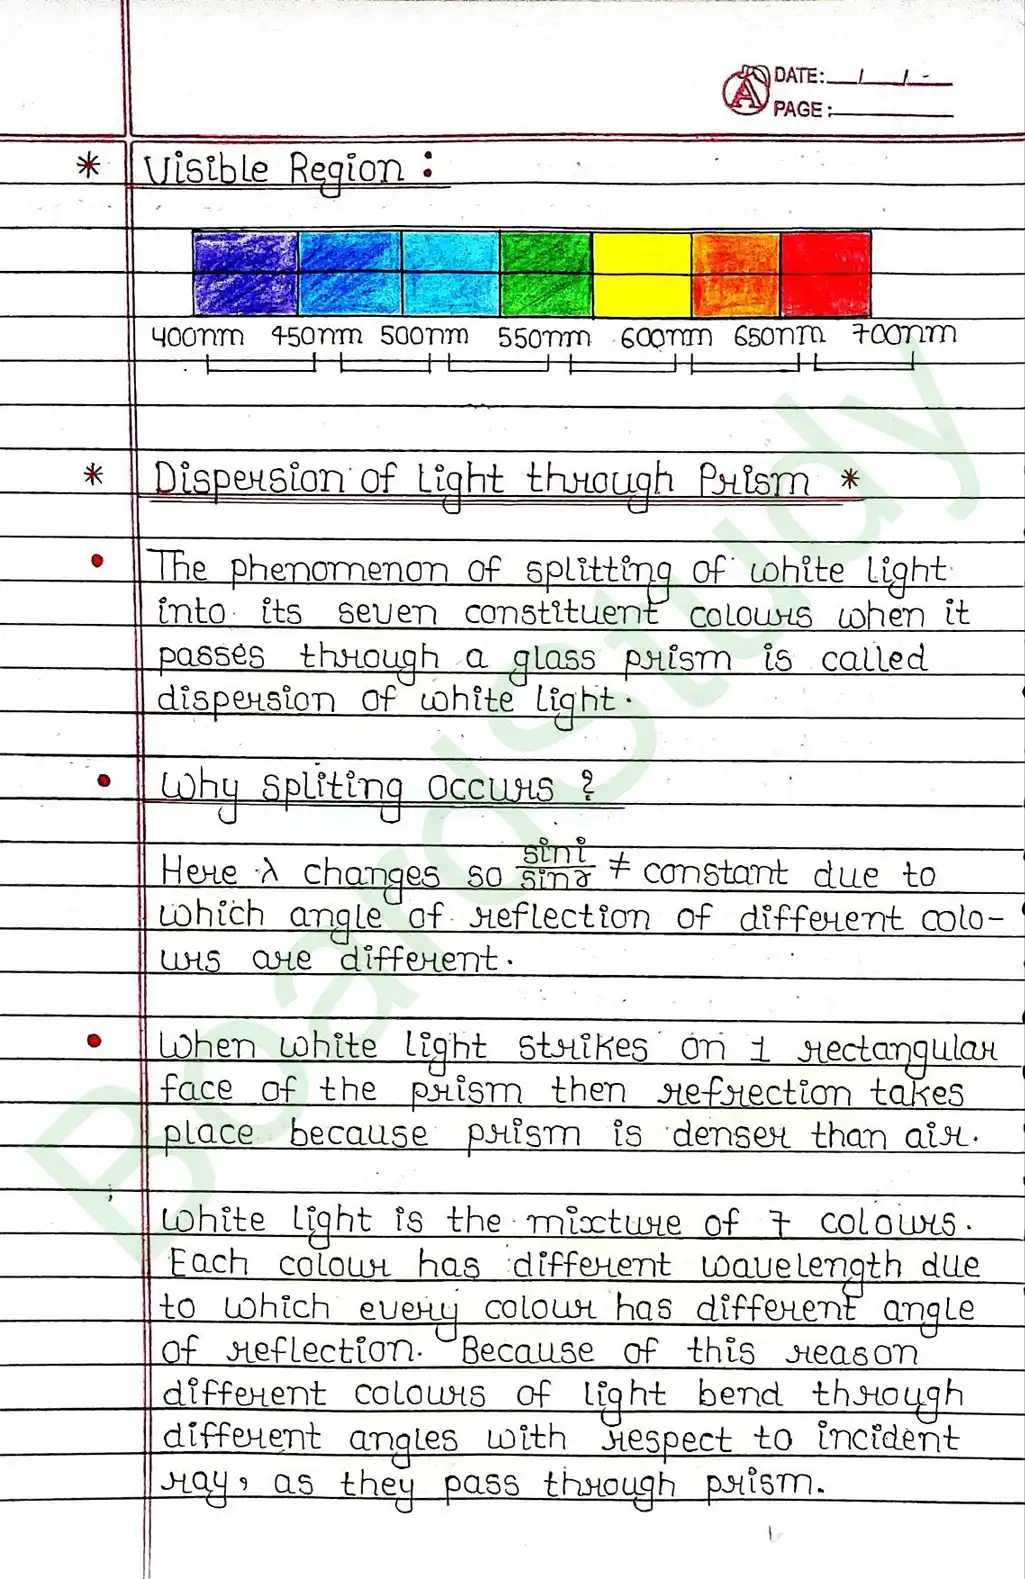 DATE: __/__/__
PAGE: ______
* Visible Region :
400nm 450nm 500nm 550nm 600nm 650nm 700nm
* Dispersion of Light through Prism *
• The phenomenon of splitting of white light
into its seven constituent colours when it
passes through a glass prism is called
dispersion of white light.
• Why spliting occurs ?
Here λ changes so sini/sinr ≠ constant due to
which angle of reflection of different colo-
urs are different.
• When white light strikes on 1 rectangular
face of the prism then refrection takes
place because prism is denser than air.
White light is the mixture of 7 colours.
Each colour has different wavelength due
to which every colour has different angle
of reflection. Because of this reason
different colours of light bend through
different angles with respect to incident
ray, as they pass through prism.
BoardStudy